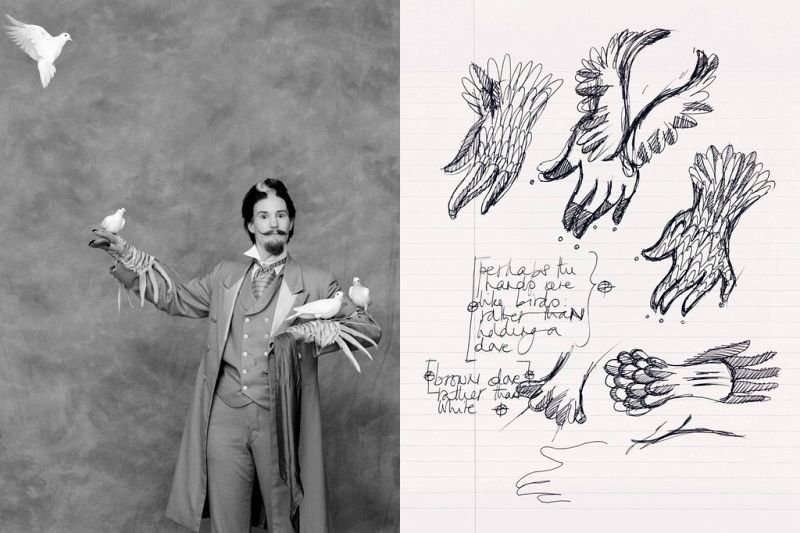 perhaps the
hands are
like birds:
rather than
holding a
dove
brown dove
rather than
white